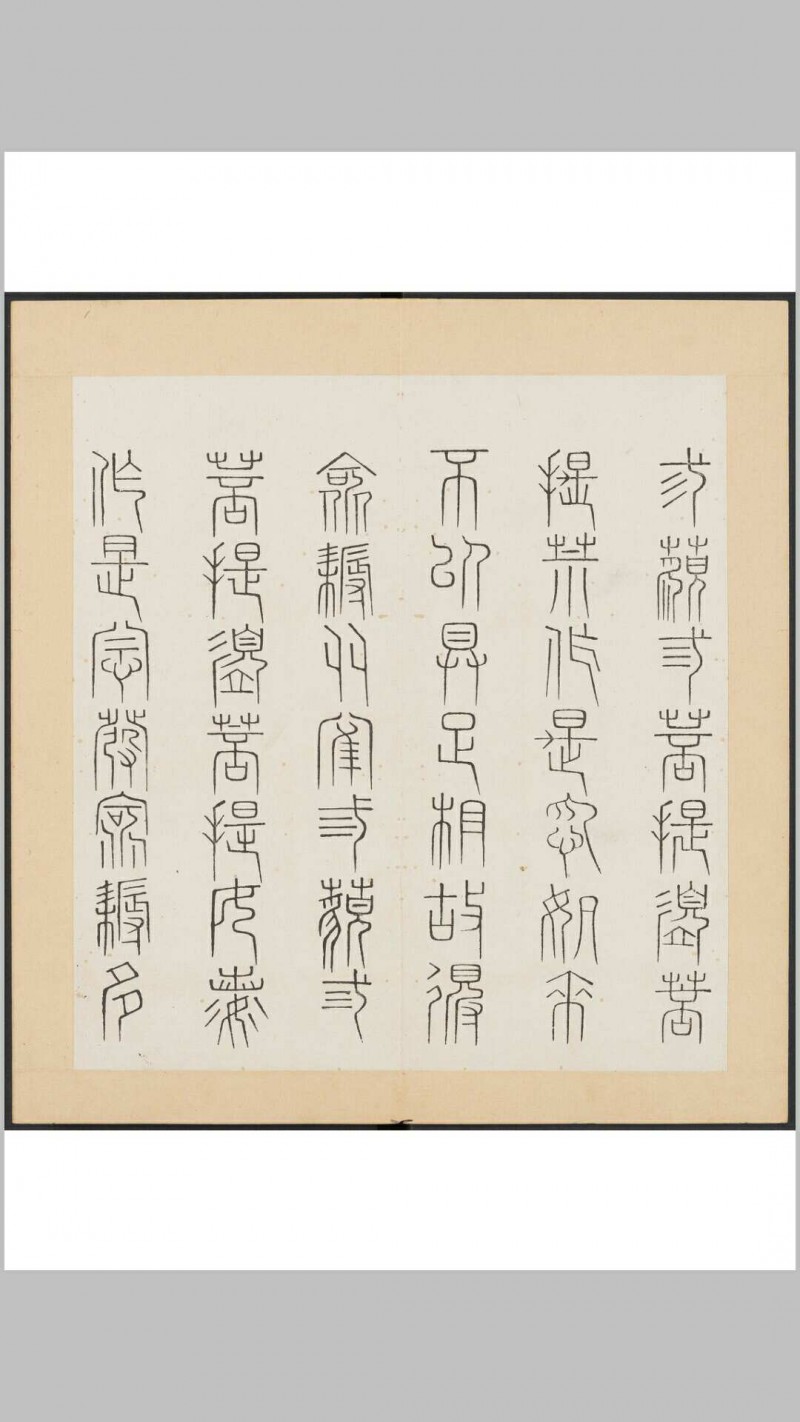 三藐三菩提須菩
提莫作是念如來
不以具足相故得
阿耨多羅三藐三
菩提須菩提汝若
作是念發阿耨多